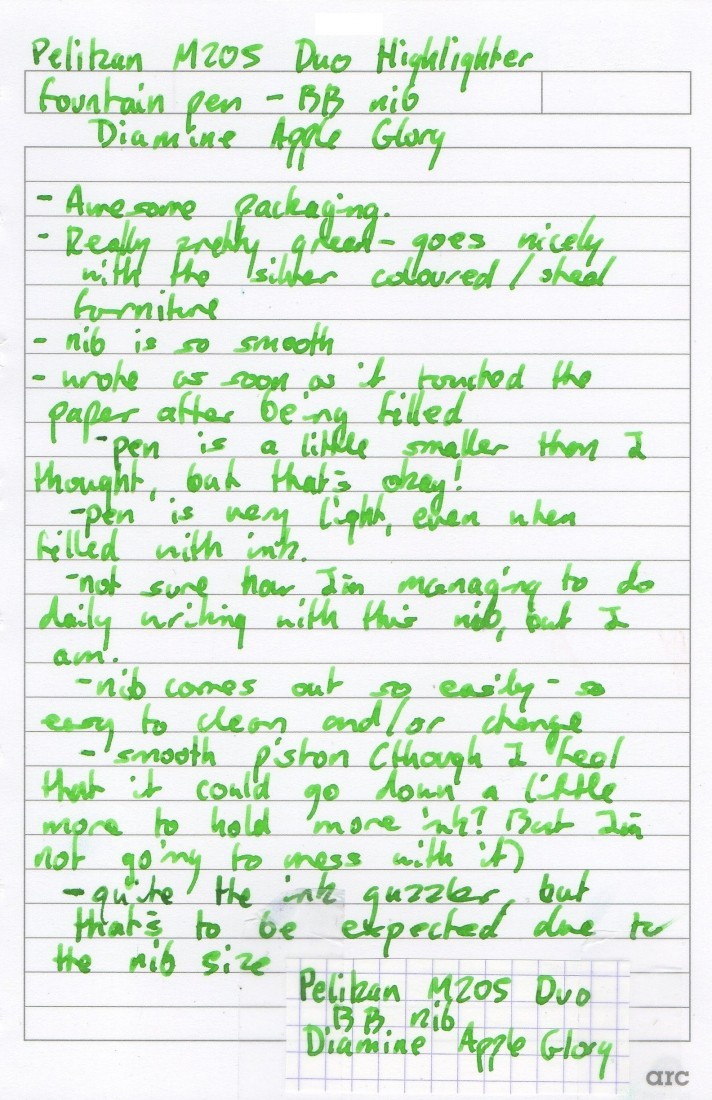 Pelikan M205 Duo Highlighter
fountain pen - BB nib
Diamine Apple Glory
- Awesome packaging.
- Really pretty green - goes nicely
with the silver coloured / steel
furniture
- nib is so smooth
- wrote as soon as it touched the
paper after being filled
- pen is a little smaller than I
thought, but that's okay!
- pen is very light, even when
filled with ink.
- not sure how I'm managing to do
daily writing with this nib, but I
am.
- nib comes out so easily - so
easy to clean and/or change
- smooth piston (though I feel
that it could go down a little
more to hold more ink? But I'm
not going to mess with it)
- quite the ink guzzler, but
that's to be expected due to
the nib size
Pelikan M205 Duo
BB nib
Diamine Apple Glory
arc